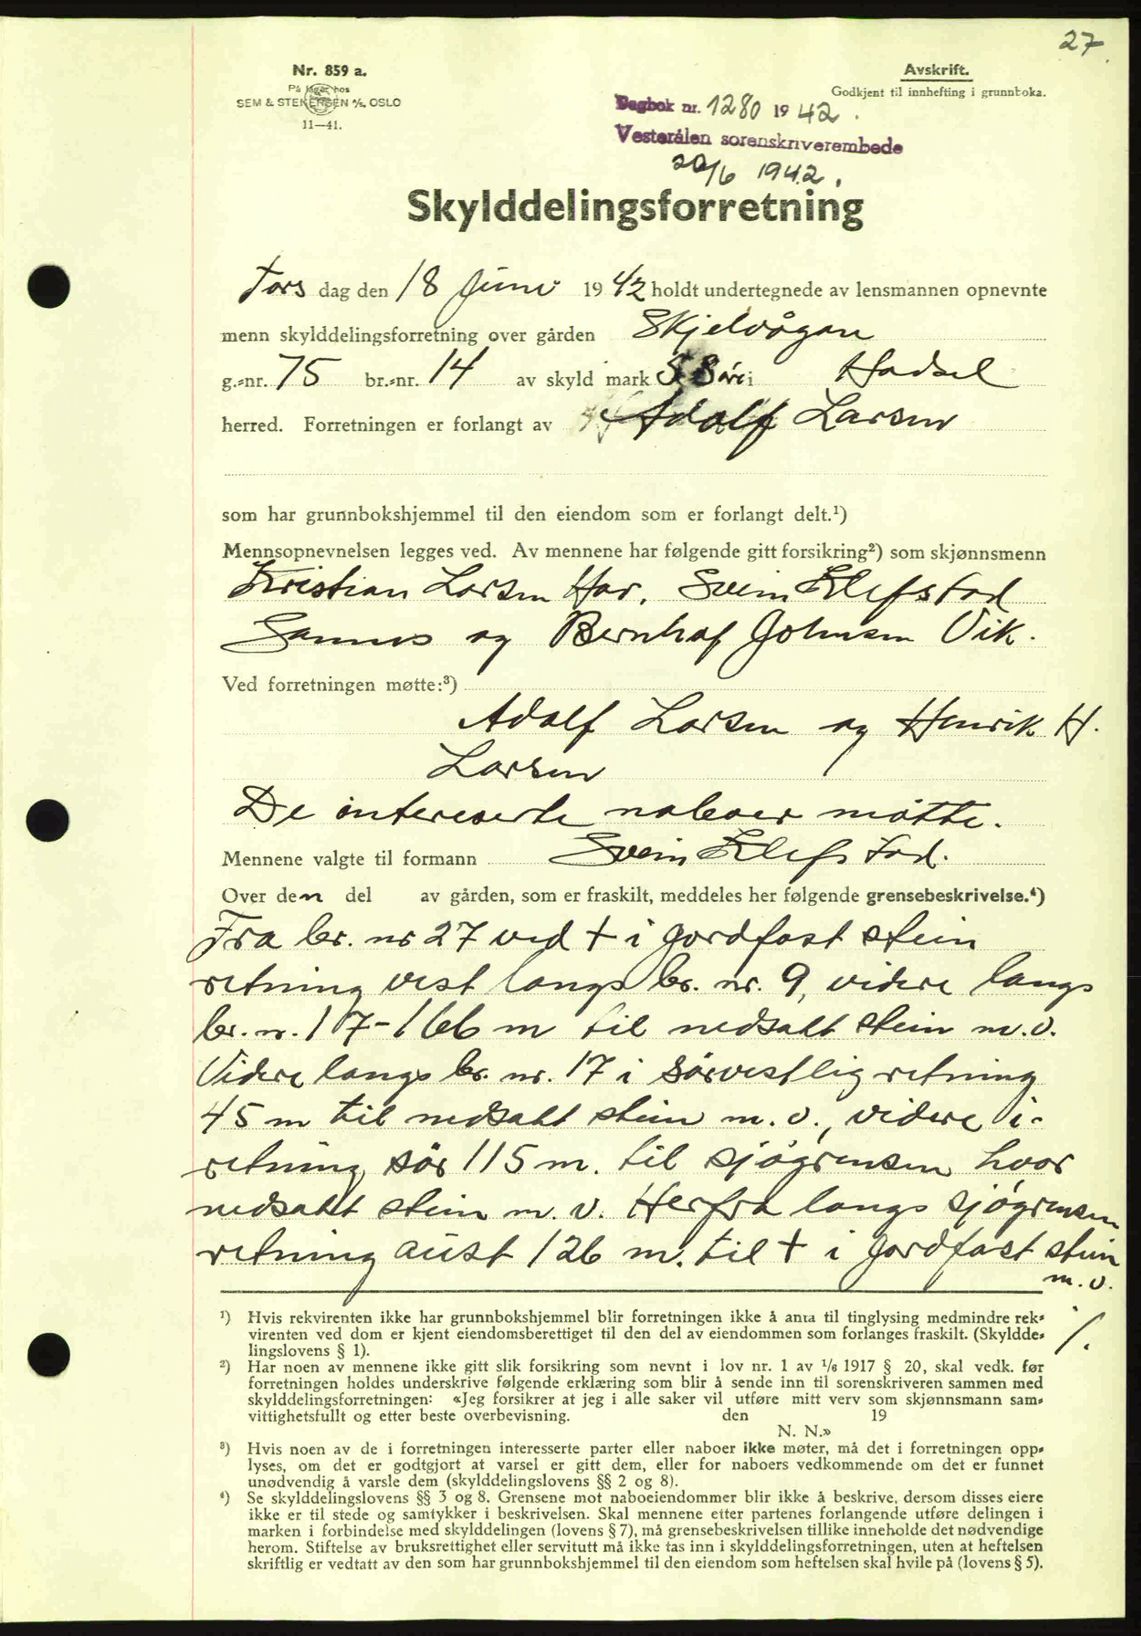 27
Nr. 859 a.
På lager hos
SEM & STENERSEN A/S, OSLO
11—41.
Avskrift.
Godkjent til innhefting i grunnboka.
Dagbok nr. 1280 1942.
Vesterålen sorenskriverembede
20/6 1942.
Skylddelingsforretning
Tors dag den 18 Juni 1942 holdt undertegnede av lensmannen opnevnte
menn skylddelingsforretning over gården Skjelvågan
g.-nr. 75 br.-nr. 14 av skyld mark 58 øre i Hadsel
herred. Forretningen er forlangt av Adolf Larsen
som har grunnbokshjemmel til den eiendom som er forlangt delt.¹)
Mennsopnevnelsen legges ved. Av mennene har følgende gitt forsikring²) som skjønnsmenn
Kristian Larsen Hav, Svein Klefstad
Sannes og Bernhof Johnsen Vik.
Ved forretningen møtte:³)
Adolf Larsen og Henrik H.
Larsen
De intereserte naboer møtte.
Mennene valgte til formann Svein Klefstad.
Over den del av gården, som er fraskilt, meddeles her følgende grensebeskrivelse.⁴)
Fra br. nr 27 ved + i jordfast stein
retning vest langs br. nr. 9, videre langs
br. nr. 17 - 166 m til nedsatt stein m. v.
Videre langs br. nr. 17 i sørvestlig retning
45 m til nedsatt stein m. v., videre i-
retning sør 115 m. til sjøgrensen hvor
nedsatt stein m. v. Herfra langs sjøgrensen
retning aust 126 m. til + i jordfast stein
m. v.
./.
¹) Hvis rekvirenten ikke har grunnbokshjemmel blir forretningen ikke å anta til tinglysing medmindre rek-
virenten ved dom er kjent eiendomsberettiget til den del av eiendommen som forlanges fraskilt. (Skyldde-
lingslovens § 1).
²) Har noen av mennene ikke gitt slik forsikring som nevnt i lov nr. 1 av 1/6 1917 § 20, skal vedk. før
forretningen holdes underskrive følgende erklæring som blir å sende inn til sorenskriveren sammen med
skylddelingsforretningen: «Jeg forsikrer at jeg i alle saker vil utføre mitt verv som skjønnsmann sam-
vittighetsfullt og etter beste overbevisning. den 19
N. N.»
³) Hvis noen av de i forretningen interesserte parter eller naboer ikke møter, må det i forretningen opp-
lyses, om det er godtgjort at varsel er gitt dem, eller for naboers vedkommende om det er funnet
unødvendig å varsle dem (skylddelingslovens §§ 2 og 8).
⁴) Se skylddelingslovens §§ 3 og 8. Grensene mot naboeiendommer blir ikke å beskrive, dersom disses eiere
ikke er til stede og samtykker i beskrivelsen. Skal mennene etter partenes forlangende utføre delingen i
marken i forbindelse med skylddelingen (lovens § 7), må grensebeskrivelsen tillike inneholde det nødvendige
herom. Stiftelse av bruksrettighet eller servitutt må ikke tas inn i skylddelingsforretningen, uten at heftelsen
skriftlig er vedtatt av den som har grunnbokshjemmel til den eiendom som heftelsen skal hvile på (lovens § 5).